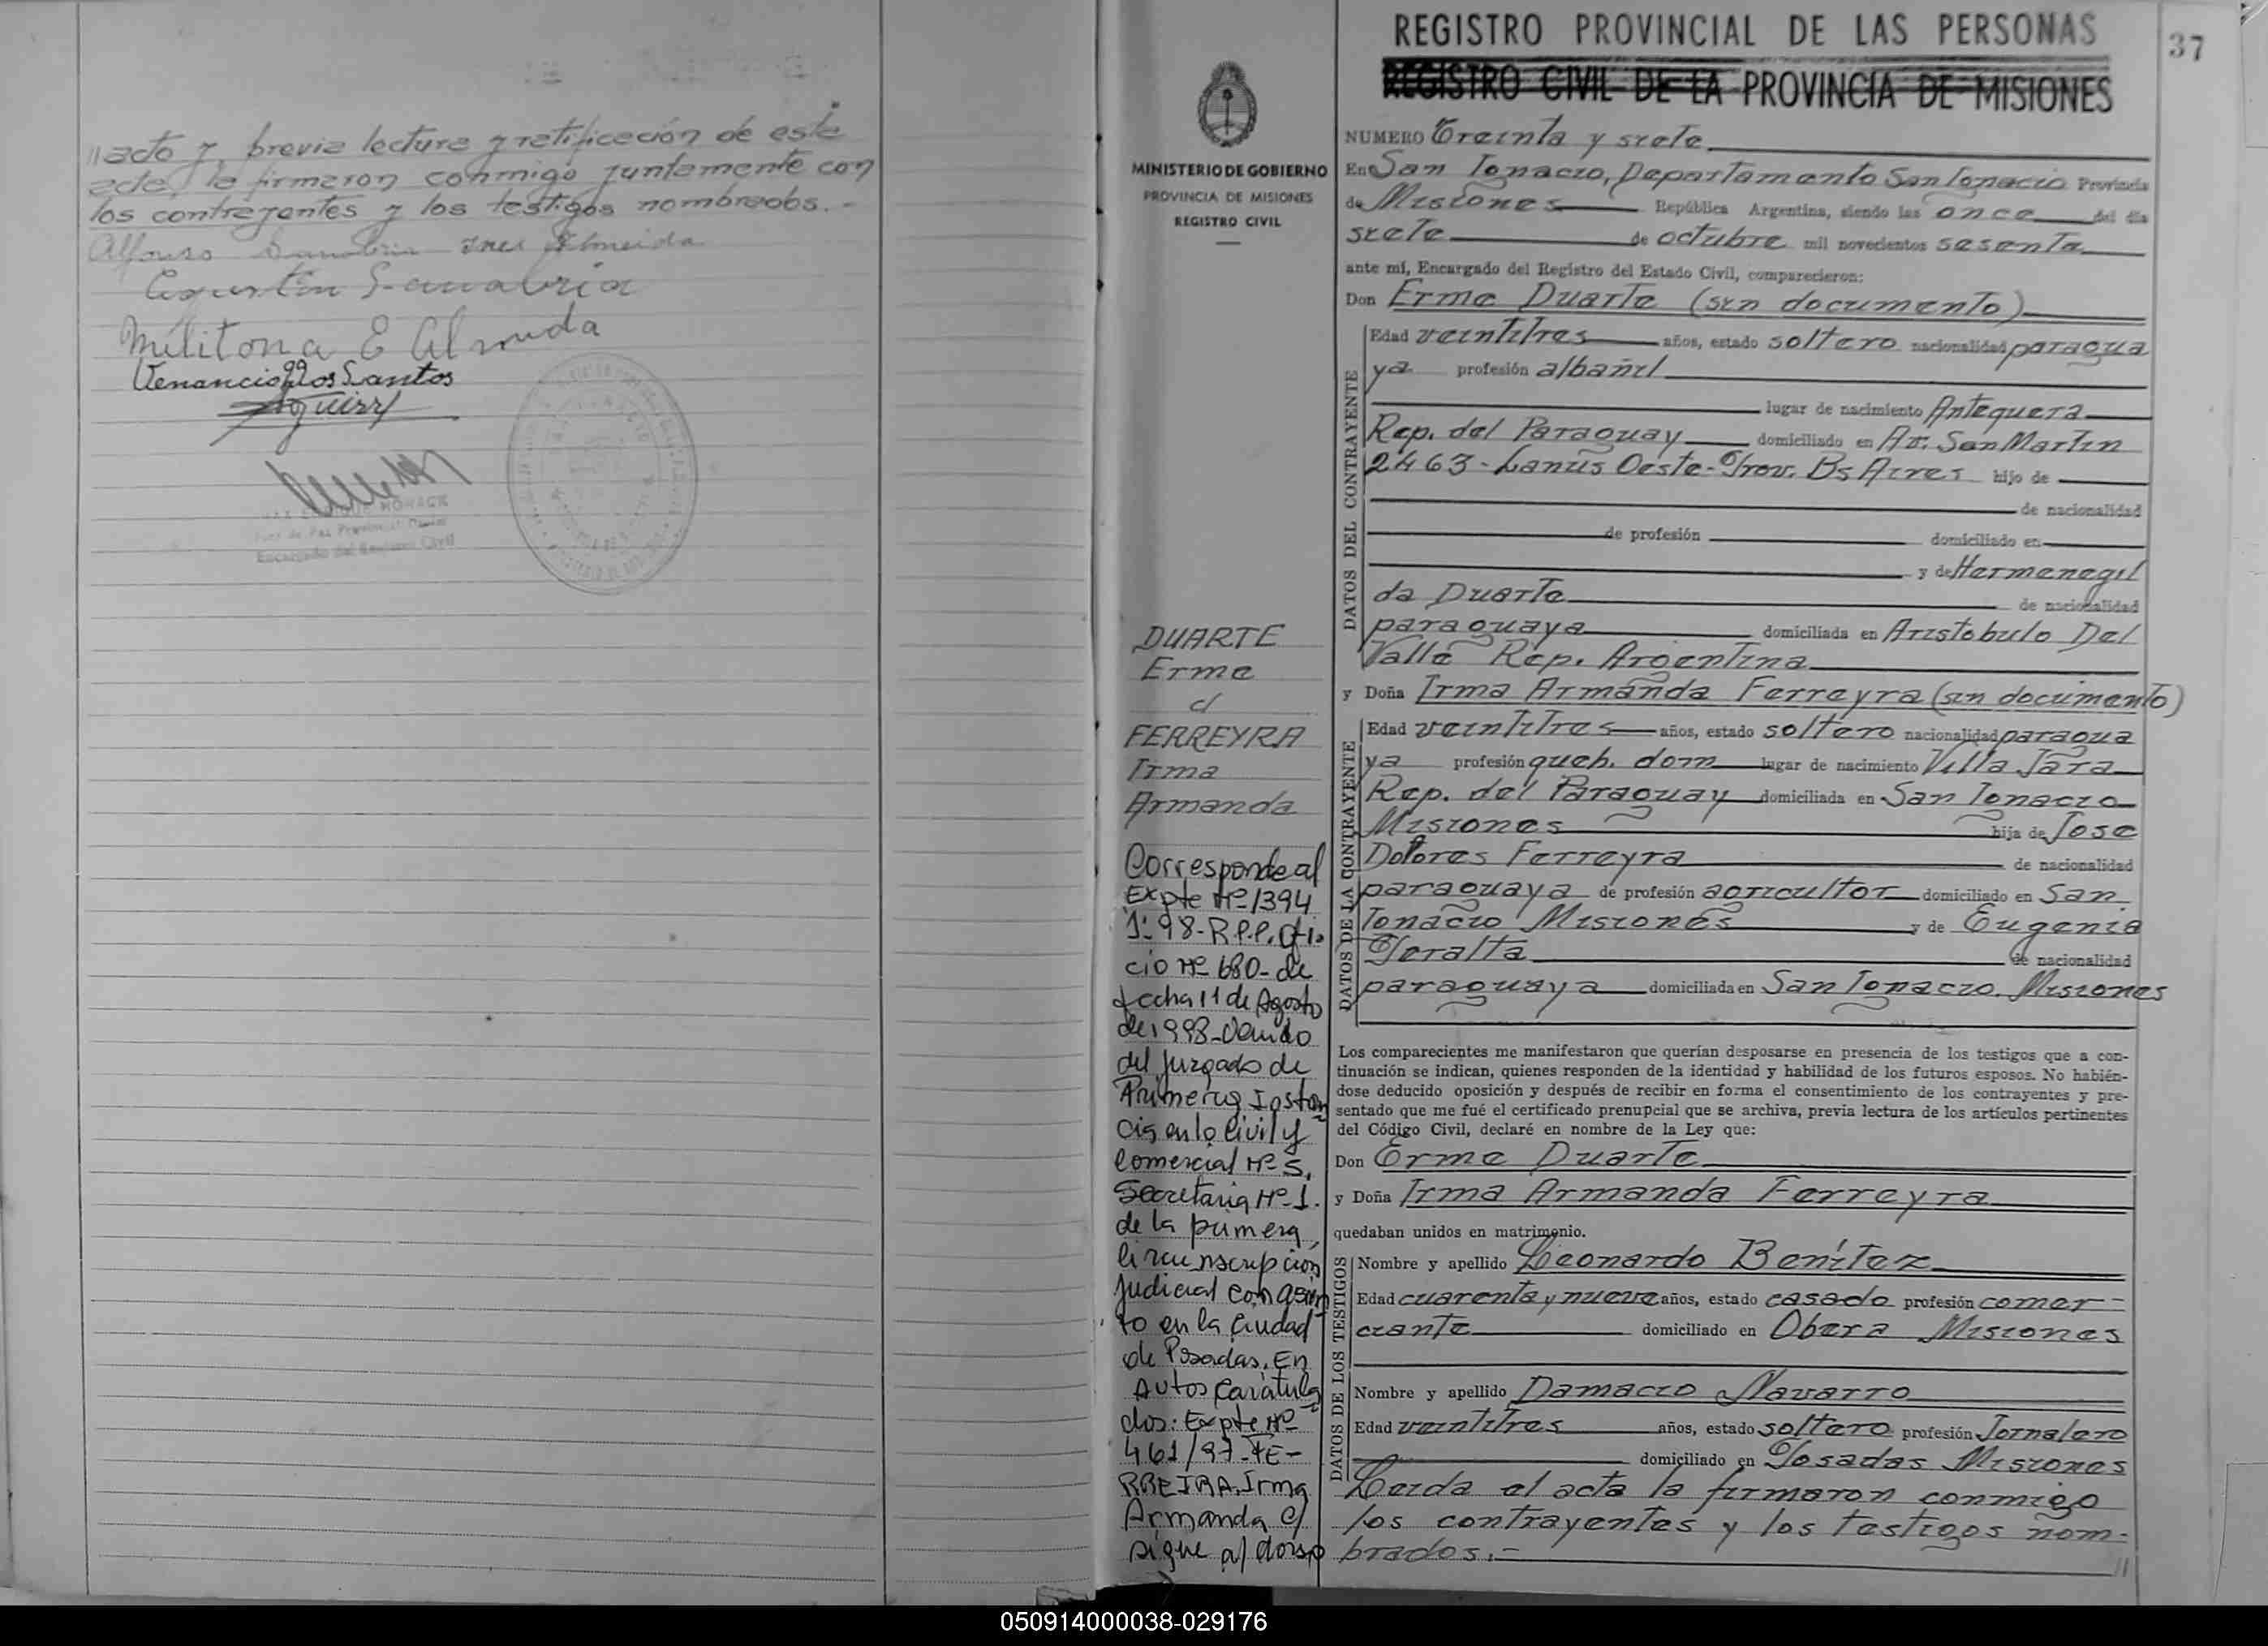 //acto y, previa lectura y ratificación de este
acta, la firmaron conmigo juntamente con
los contrayentes y los testigos nombrados.-
Alfonso Sanabria Ines Almeida
Agustin Sanabria
Militona E Almeida
Venancio Dos Santos
Encargado del Registro Civil
MINISTERIO DE GOBIERNO
PROVINCIA DE MISIONES
REGISTRO CIVIL
DUARTE
Erme
c/
FERREYRA
Irma
Armanda
Corresponde al
Expte Nº 1394
98-R.P.P. Ofi-
cio Nº 680-de
fecha 11 de Agosto
de 1998-Venido
del Juzgado de
Primera Instan
cia en lo Civil y
Comercial Nº 5,
Secretaria Nº 1.
de la primera
circunscripcion
Judicial con asien
to en la Ciudad
de Posadas. En
Autos Caratula
dos: Expte Nº
461/97-FE-
RREIRA, Irma
Armanda c/
sigue al dorso
37
REGISTRO PROVINCIAL DE LAS PERSONAS
REGISTRO CIVIL DE LA PROVINCIA DE MISIONES
NUMERO Treinta y siete
En San Ignacio, Departamento San Ignacio Provincia
de Misiones República Argentina, siendo las once del día
siete de octubre mil novecientos sesenta
ante mí, Encargado del Registro del Estado Civil, comparecieron:
Don Erme Duarte (sin documento)
DATOS DEL CONTRAYENTE
Edad veintitres años, estado soltero nacionalidad paragua
ya profesión albañil
lugar de nacimiento Antequera
Rep. del Paraguay domiciliado en Av. San Martin
2463-Lanús Oeste-Prov. Bs Aires hijo de
de nacionalidad
de profesión domiciliado en
y de Hermenegil
da Duarte de nacionalidad
paraguaya domiciliada en Aristobulo Del
Valle Rep. Argentina
y Doña Irma Armanda Ferreyra (sin documento)
DATOS DE LA CONTRAYENTE
Edad veintitres años, estado soltero nacionalidad paragua
ya profesión queh. dom lugar de nacimiento Villa Jara
Rep. del Paraguay domiciliada en San Ignacio
Misiones hija de Jose
Dolores Ferreyra de nacionalidad
paraguaya de profesión agricultor domiciliado en San
Ignacio Misiones y de Eugenia
Peralta de nacionalidad
paraguaya domiciliada en San Ignacio. Misiones
Los comparecientes me manifestaron que querían desposarse en presencia de los testigos que a con-
tinuación se indican, quienes responden de la identidad y habilidad de los futuros esposos. No habién-
dose deducido oposición y después de recibir en forma el consentimiento de los contrayentes y pre-
sentado que me fué el certificado prenupcial que se archiva, previa lectura de los artículos pertinentes
del Código Civil, declaré en nombre de la Ley que:
Don Erme Duarte
y Doña Irma Armanda Ferreyra
quedaban unidos en matrimonio.
DATOS DE LOS TESTIGOS
Nombre y apellido Leonardo Benítez
Edad cuarenta y nueve años, estado casado profesión comer-
ciante domiciliado en Obera Misiones
Nombre y apellido Damacio Navarro
Edad veintitres años, estado soltero profesión Jornalero
domiciliado en Posadas Misiones
Leida el acta la firmaron conmigo
los contrayentes y los testigos nom-
brados.-
//
050914000038-029176